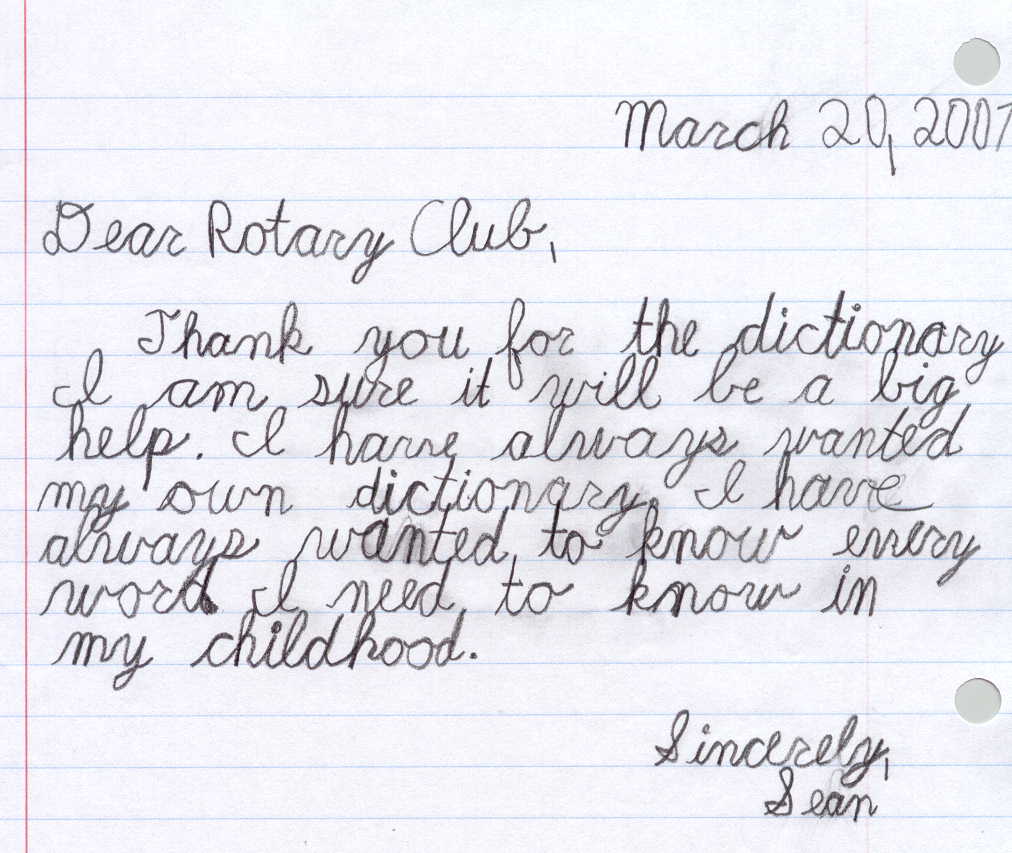 March 20, 2007
Dear Rotary Club,
Thank you for the dictionary
I am sure it will be a big
help. I have always wanted
my own dictionary. I have
always wanted to know every
word I need to know in
my childhood.
Sincerely,
Sean